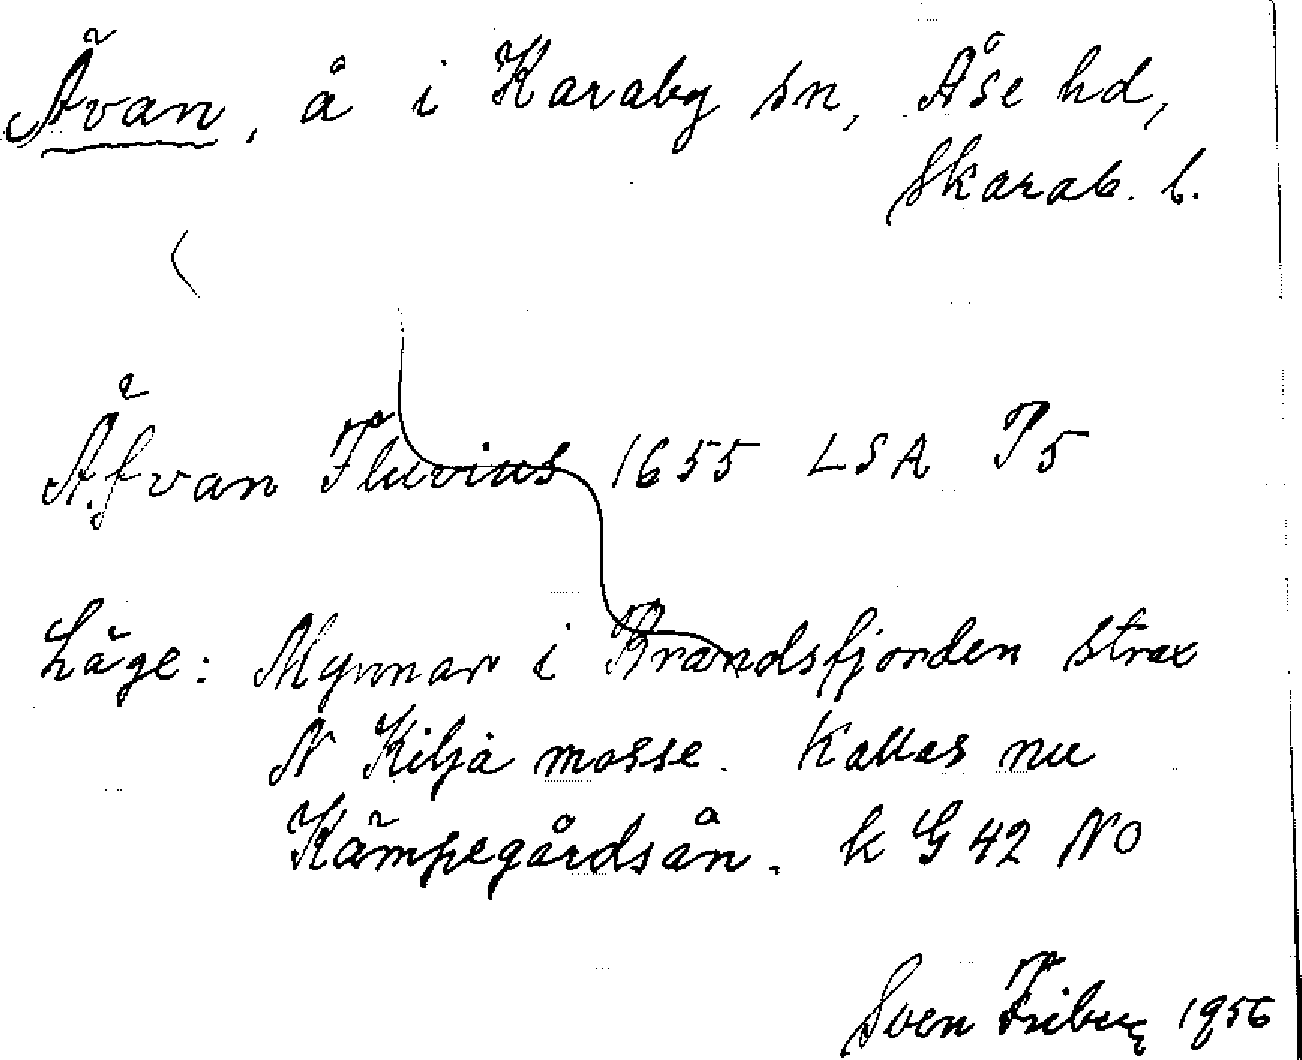 Ävan, å i Karaby sn, Åse hd,
Skarab. l.
Äfvan Fluvius 1655 LSA P5
Läge: Mynnar i Brandsfjorden strax
N Kilja mosse. Kallas nu
Kämpegårdsån. k G 42 NO
Sven Friberg 1956